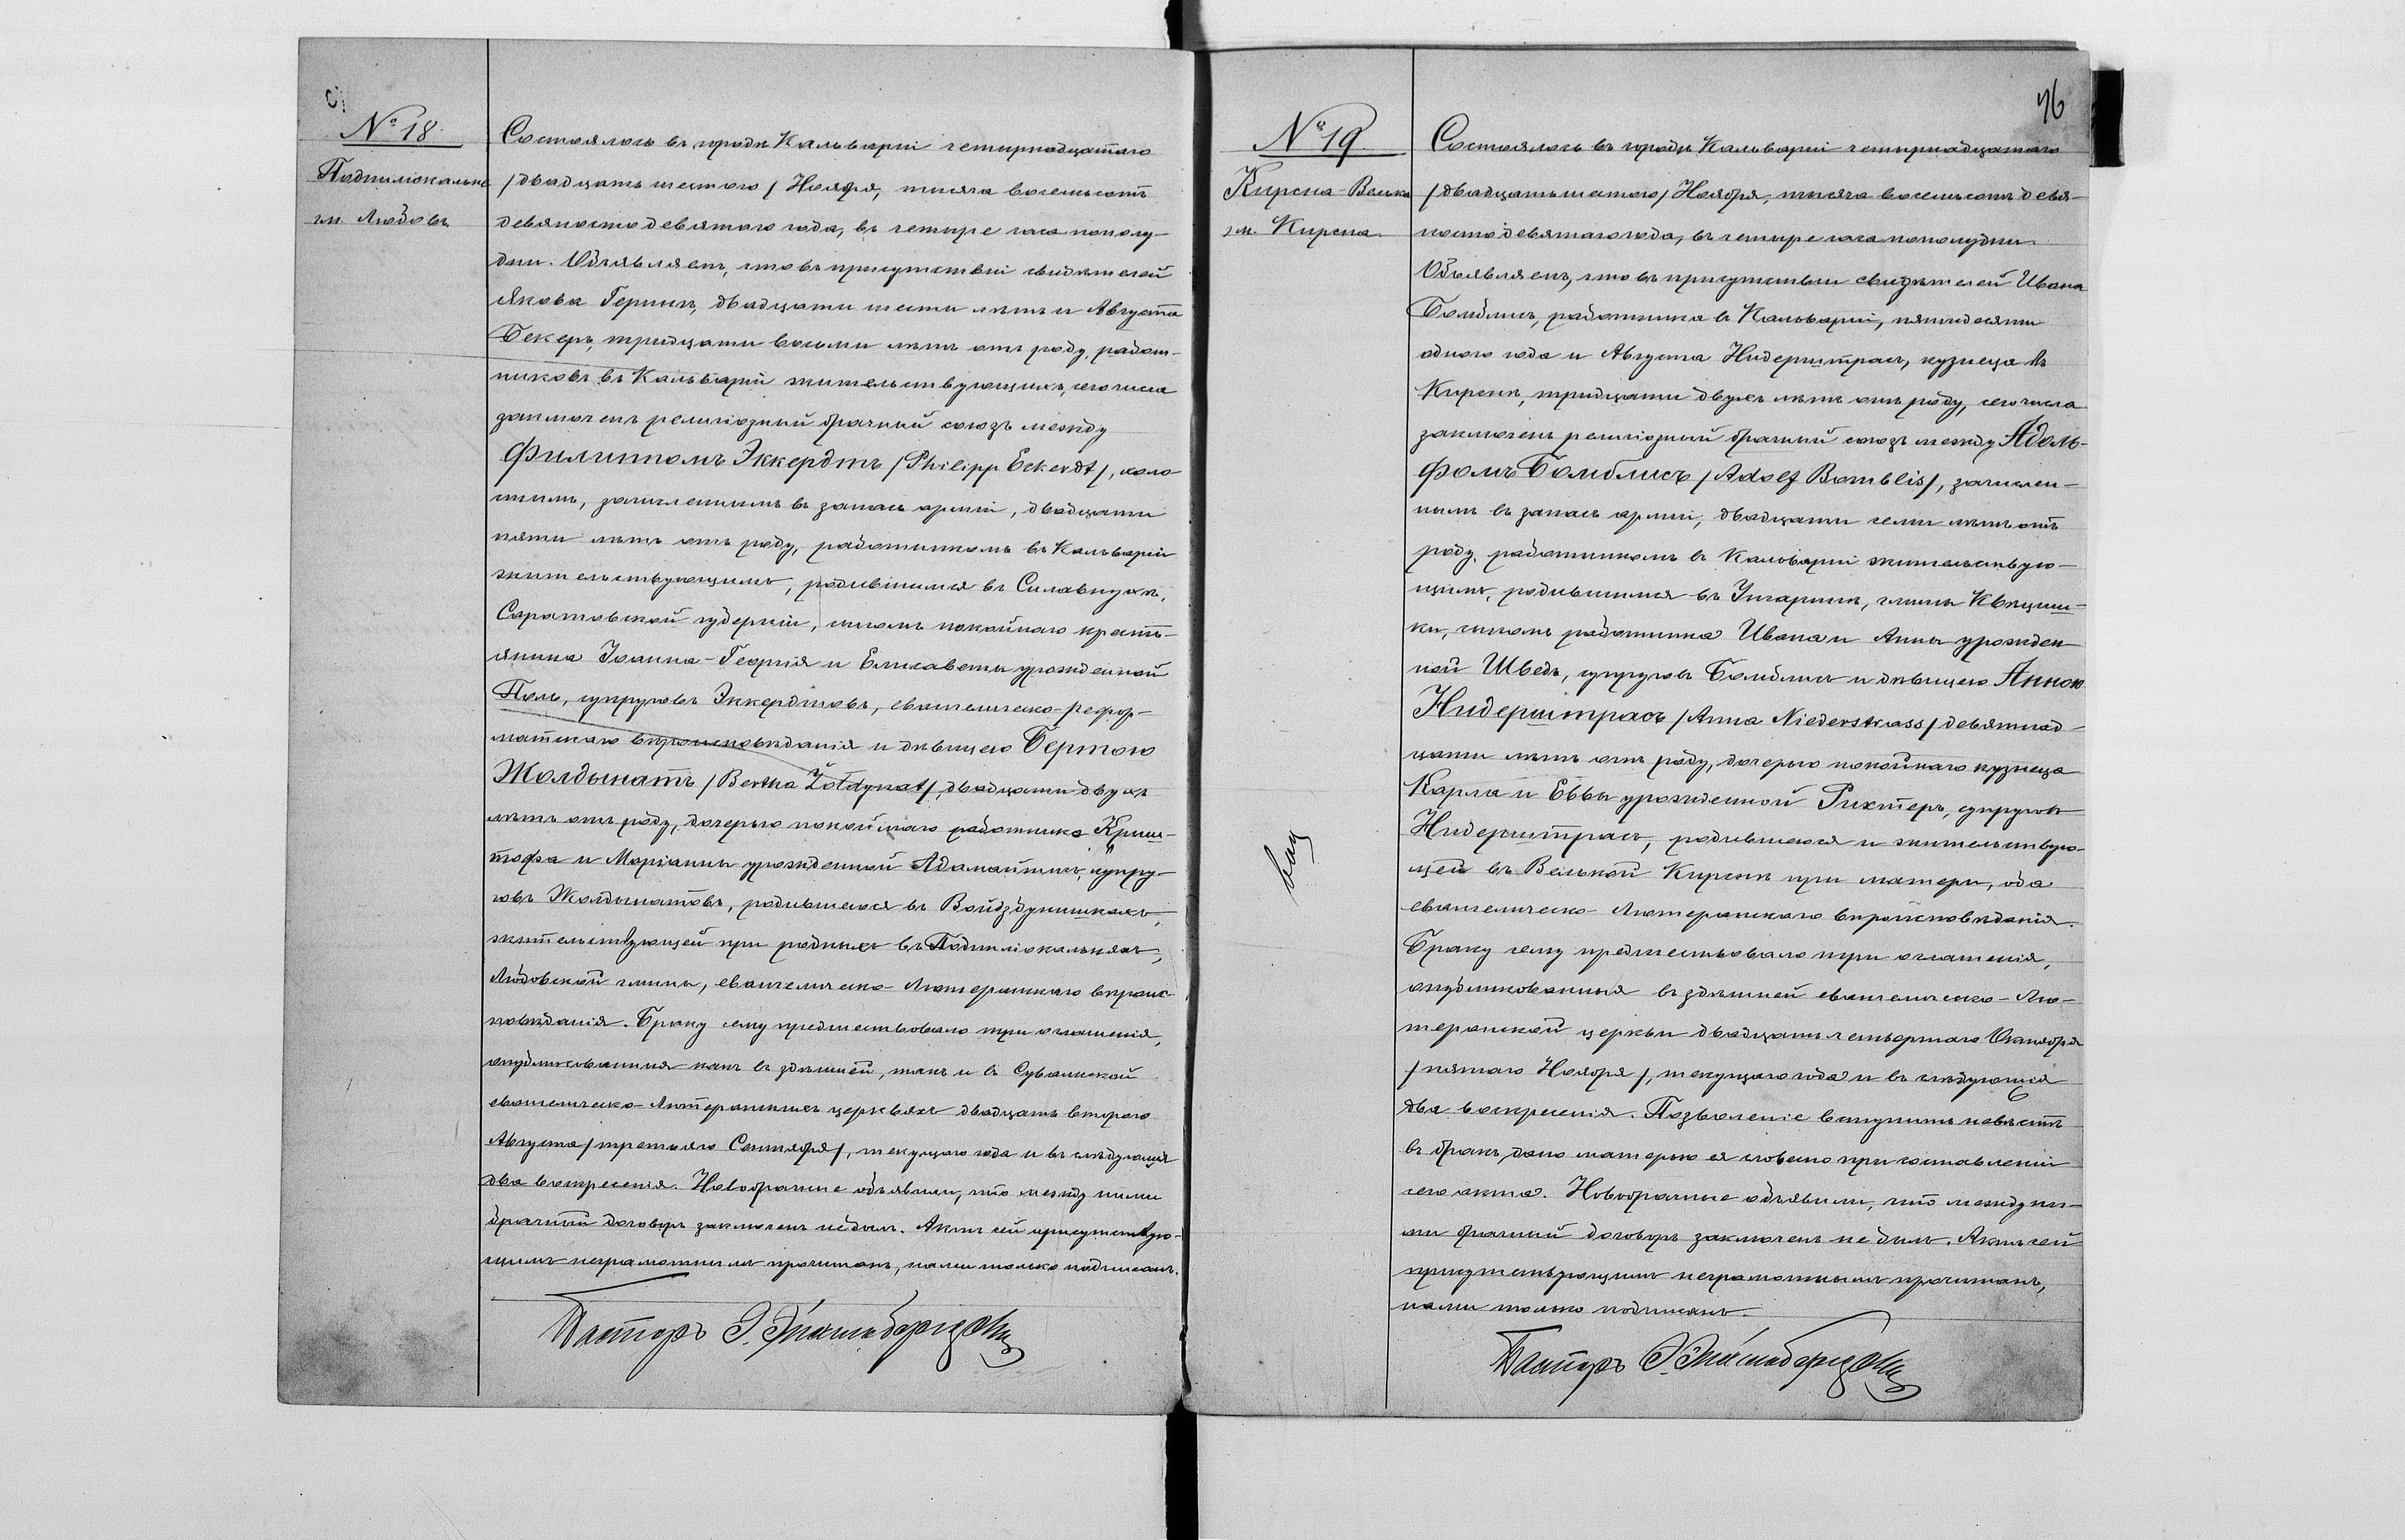 № 18.
Подпилюкальне
гм. Людовъ
Состоялось въ городѣ Кальваріи четырнадцатаго
/двадцать шестого/ Ноября, тысяча восемьсотъ
девяносто девятаго года, въ четыре часа пополу-
дни. Объявляемъ, что въ присутствіи свидѣтелей
Якова , двадцати шести лѣтъ и Августа
Бекеръ, тридцати восьми лѣтъ отъ роду, работ-
никовъ въ Кальваріи жительствующихъ, сего числа
заключенъ религіозный брачный союзъ между
Филиппомъ Эккердтъ /Philipp Eckerdt/, холо-
стымъ, зачисленнымъ въ запасъ арміи, двадцати
пяти лѣтъ отъ роду, работникомъ въ Кальваріи
жительствующимъ, родившимся въ
Саратовской губерніи, сыномъ покойнаго кресть-
янина Іоанна-Георгія и Елисаветы урожденной
Поль, супруговъ Эккердтовъ, евангелическо-рефор-
матскаго вѣроисповѣданія и дѣвицею Бертою
Жолдынатъ /Bertha Żołdynat/, двадцати двухъ
лѣтъ отъ роду, дочерью покойнаго работника Криш-
тофа и Маріанны урожденной Адомайтисъ, супру-
говъ Жолдынатовъ, родившеюся въ Войдздунишкахъ,
жительствующей при родныхъ въ Подпиліокальняхъ,
Людовской гмины, евангелическо-Лютеранскаго вѣроис-
повѣданія. Браку сему предшествовало три оглашенія,
опубликованныя какъ въ здѣшней, такъ и въ Сувалкской
евангелическо-Лютеранскихъ церквяхъ двадцать второго
Августа /третьяго Сентября/, текущаго года и въ слѣдующія
два воскресенія. Новобрачные объявили, что между ними
брачный договоръ заключенъ не былъ. Актъ сей присутствую-
щимъ неграмотнымъ прочитанъ, нами только подписанъ.
Пасторъ
76
№ 19.
Кирсна-Велька
гм. Кирсна.
Состоялось въ городѣ Кальваріи четырнадцатаго
/двадцать шестого/ Ноября, тысяча восемьсотъ девя-
носто девятаго года, въ четыре часа пополудни.
Объявляемъ, что въ присутствіи свидѣтелей Ивана
Бомблисъ, работника въ Кальваріи, пятидесяти
одного года и Августа Нидерштрасъ, кузнеца въ
Кирснѣ, тридцати двухъ лѣтъ отъ роду, сего числа
заключенъ религіозный брачный союзъ между Адоль-
фомъ Бомблисъ /Adolf Bomblis/, зачислен-
нымъ въ запасъ арміи, двадцати семи лѣтъ отъ
роду, работникомъ въ Кальваріи жительствую-
щимъ, родившимся въ гмины Квѣциш-
ки, сыномъ работника Ивана и Анны урожден-
ной Шведъ, супруговъ Бомблисъ и дѣвицею Анною
Нидерштрасъ /Anna Niederstrass/ девятнад-
цати лѣтъ отъ роду, дочерью покойнаго кузнеца
Карла и Еввы урожденной Рихтеръ, супруговъ
Нидерштрасъ, родившеюся и жительствую-
щей въ Велькой Кирснѣ при матери, оба
евангелическо-Лютеранскаго вѣроисповѣданія.
Браку сему предшествовало три оглашенія,
опубликованныя въ здѣшней евангелическо-Лю-
теранской церкви двадцать четвертаго Октября
/пятаго Ноября/, текущаго года и въ слѣдующія
два воскресенія. Позволеніе вступить невѣстѣ
въ бракъ дано матерью ея словесно при составленіи
сего акта. Новобрачные объявили, что между ни-
ми брачный договоръ заключенъ не былъ. Актъ сей
присутствующимъ неграмотнымъ прочитанъ,
нами только подписанъ.
Пасторъ